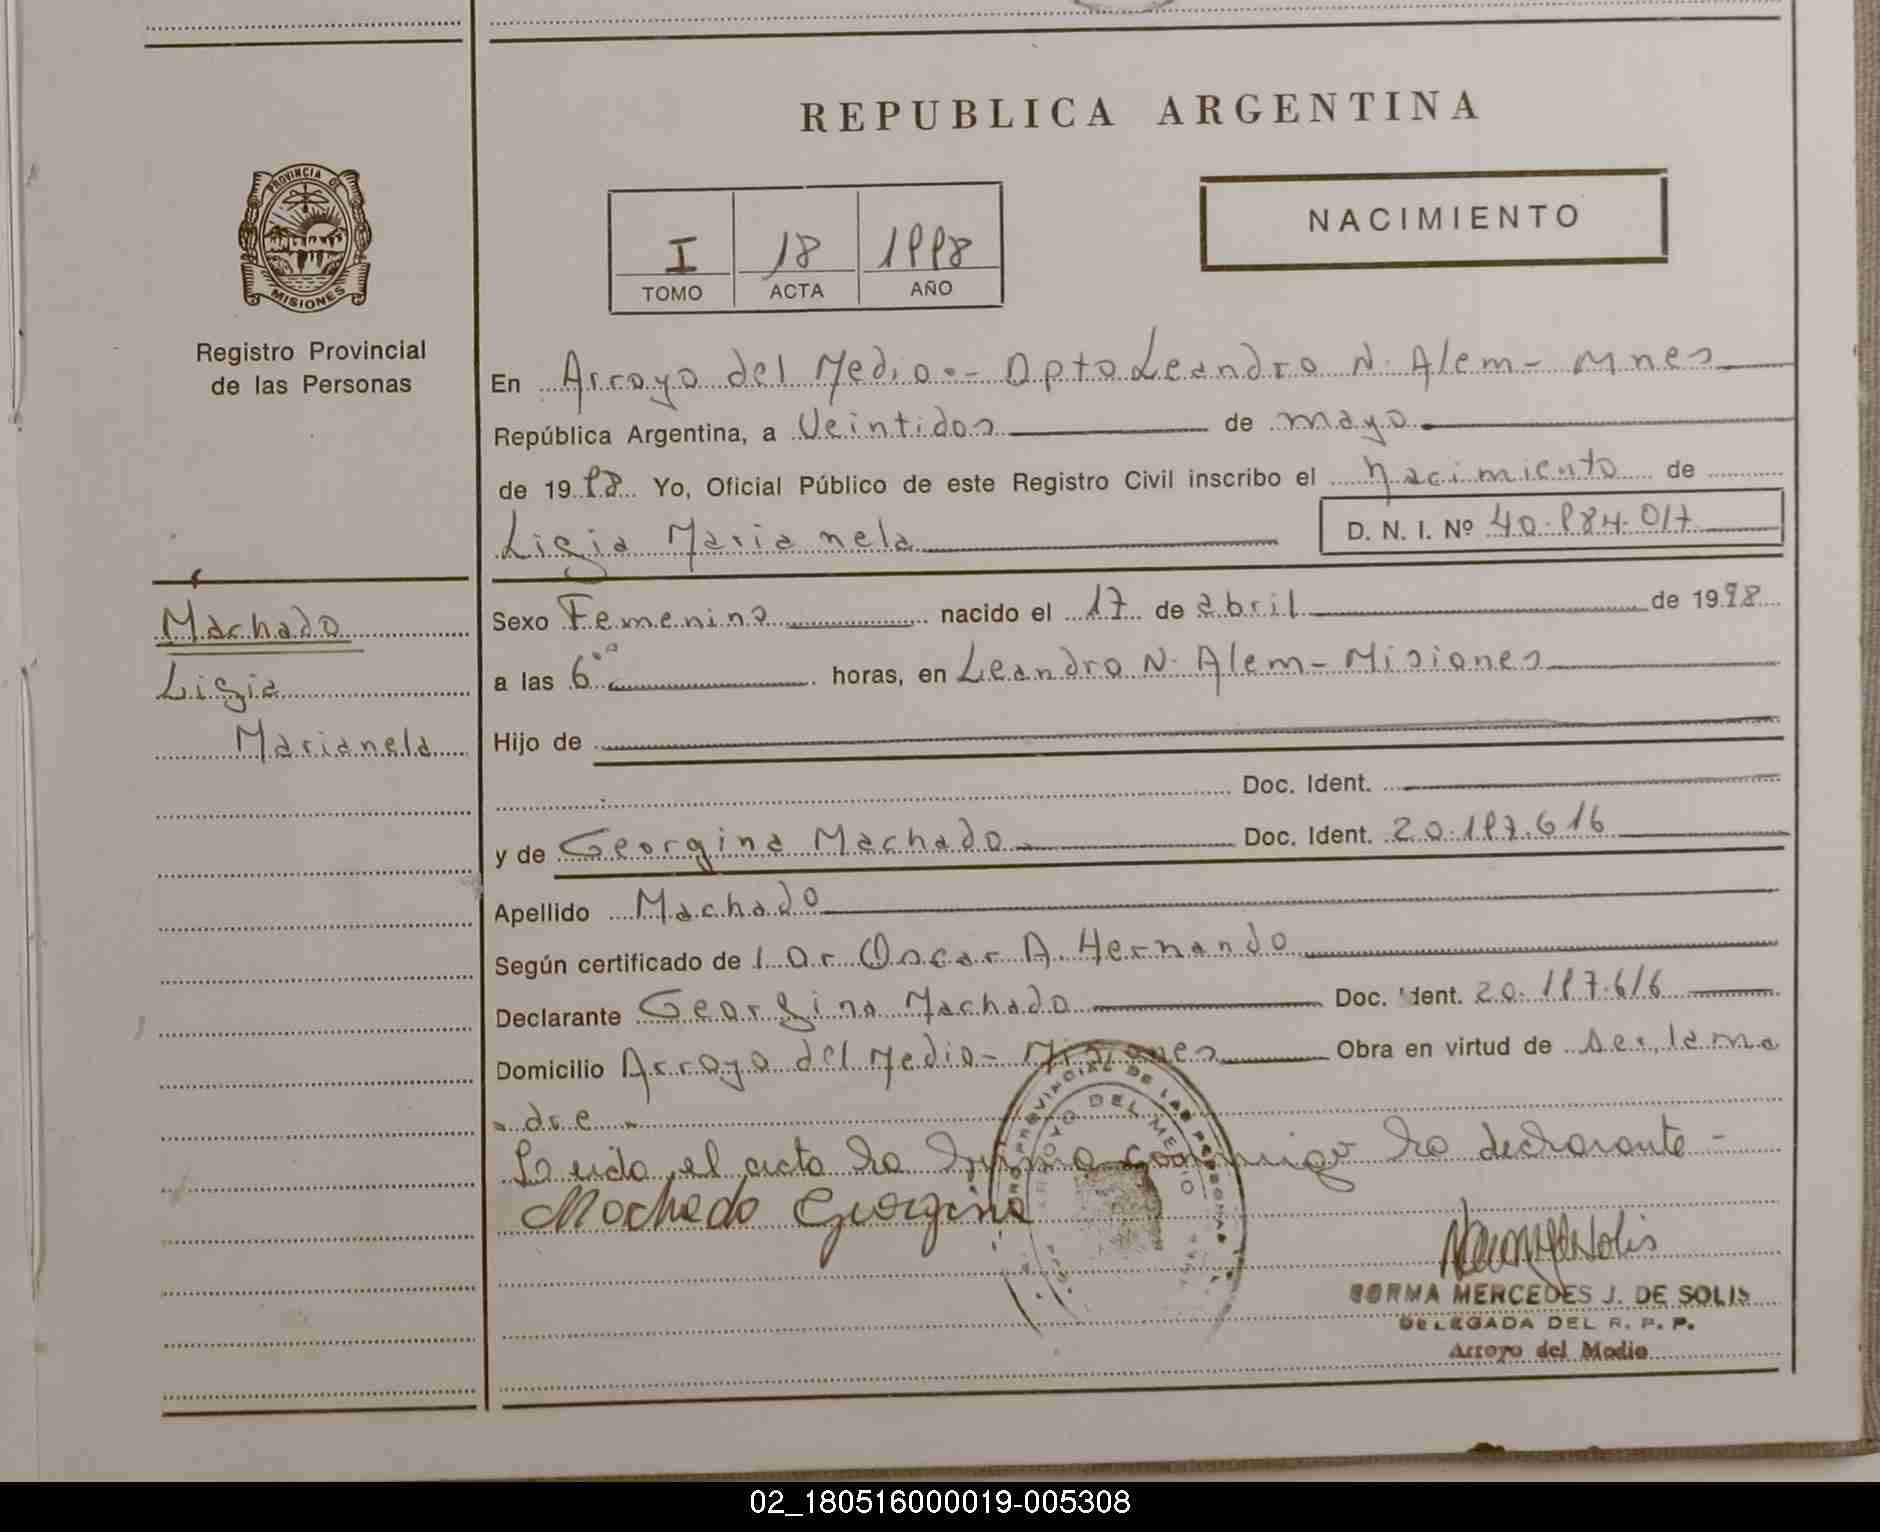 REPUBLICA ARGENTINA
PROVINCIA DE
MISIONES
Registro Provincial
de las Personas
I 18 1998
TOMO ACTA AÑO
NACIMIENTO
En Arroyo del Medio.- Dpto Leandro N. Alem- Mnes
República Argentina, a Veintidos de mayo
de 1998 Yo, Oficial Público de este Registro Civil inscribo el Nacimiento de
Ligia Marianela D. N. I. Nº 40.984.017
Machado
Ligia
Marianela
Sexo Femenino nacido el 17 de abril de 1998
a las 6 horas, en Leandro N. Alem- Misiones
Hijo de
Doc. Ident.
y de Georgina Machado Doc. Ident. 20.197.616
Apellido Machado
Según certificado de l Dr Oscar A. Hernando
Declarante Georgina Machado Doc. Ident. 20.197.616
Domicilio Arroyo del Medio- Misiones Obra en virtud de ser la ma
dre
Leida el acta la firma conmigo la declarante -
Machado Georgina
PROVINCIAL DE LAS PERSONAS
ARROYO DEL MEDIO
NORMA MERCEDES J. DE SOLIS
DELEGADA DEL R. P. P.
Arroyo del Medio
02_180516000019-005308